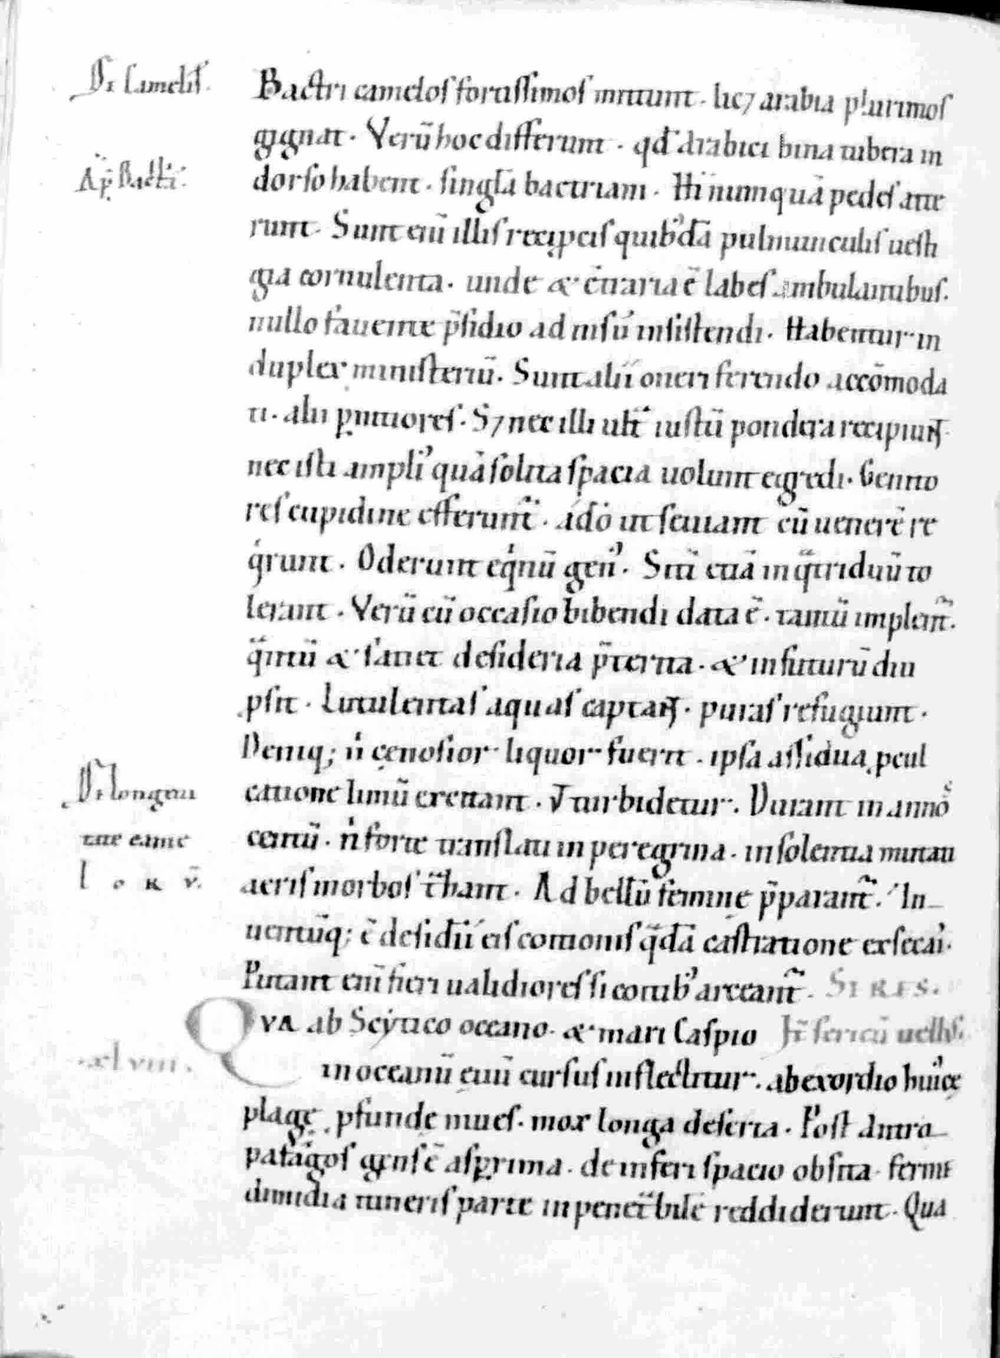 De Camelis.
Bactri camelos fortissimos mittunt . lic⁊ arabia plurimos
gignat . Verũ hoc differunt . qđ arabici bina tubera in
Ap̃ Bactri.
dorso habent . singl̃a bactriani . Hi numquã pedes atte
runt . Sunt eni᷃ illis recip̱cis quibꝰdã pulmunculis uesti
gia cornulenta . unde & c̃traria ẽ labes ambulantibus .
nullo fauente p̃sidio ad nisũ insistendi . Habentur in
duplex ministeriũ . Sunt alii oneri ferendo accõmoda
ti . alii p̱nitiores . S⁊ nec illi ult᷃ iustũ pondera recipiunt
nec isti ampliꝰ quã solita spacia uolunt egredi . Genito
res cupidine efferunt᷃ . ádó ut seuiant cũ uenerẽ re
q̇runt . Oderunt eq̇nũ genꝰ . Sitĩ etiã in q᷃triduũ to
lerant . Verũ cũ occasio bibendi data ẽ . tantũ implent᷃ .
q᷃ntũ & satiet desideria p̃terita . & in futurũ diu
p̱sit . Lutulentas aquas captant . puras refugiunt .
Deniq; ñ cęnosior liquor fuerit . ipsa assidua p̱cul
De longeui
catione limũ excitant . ut turbidetur . Durant in annos
tate came
centũ . ñ forte translati in peregrina . insolentia mutati
l o R ṽ.
aeris morbos t᷃hant . Ad bellũ feminę p̃parant᷃ . In
uentũq; ẽ desideriũ eis coitionis q᷃dã castratione exsecari .
Putant eni᷃ fieri ualidiores si coitibꝰ arceant᷃ . SERES.
QVA ab Scytico oceano . & mari Caspio It̃ sericũ uellus.
xlviii.
in oceanũ eoũ cursus inflectitur . ab exordio huiꝰce
plagę . p̱funde niues . mox longa deserta . Post antro
pafagos gens ẽ asp̱rima . de inferi spacio obsita ferme
dimidia itineris parte inpenet᷃bile reddiderunt . Qua